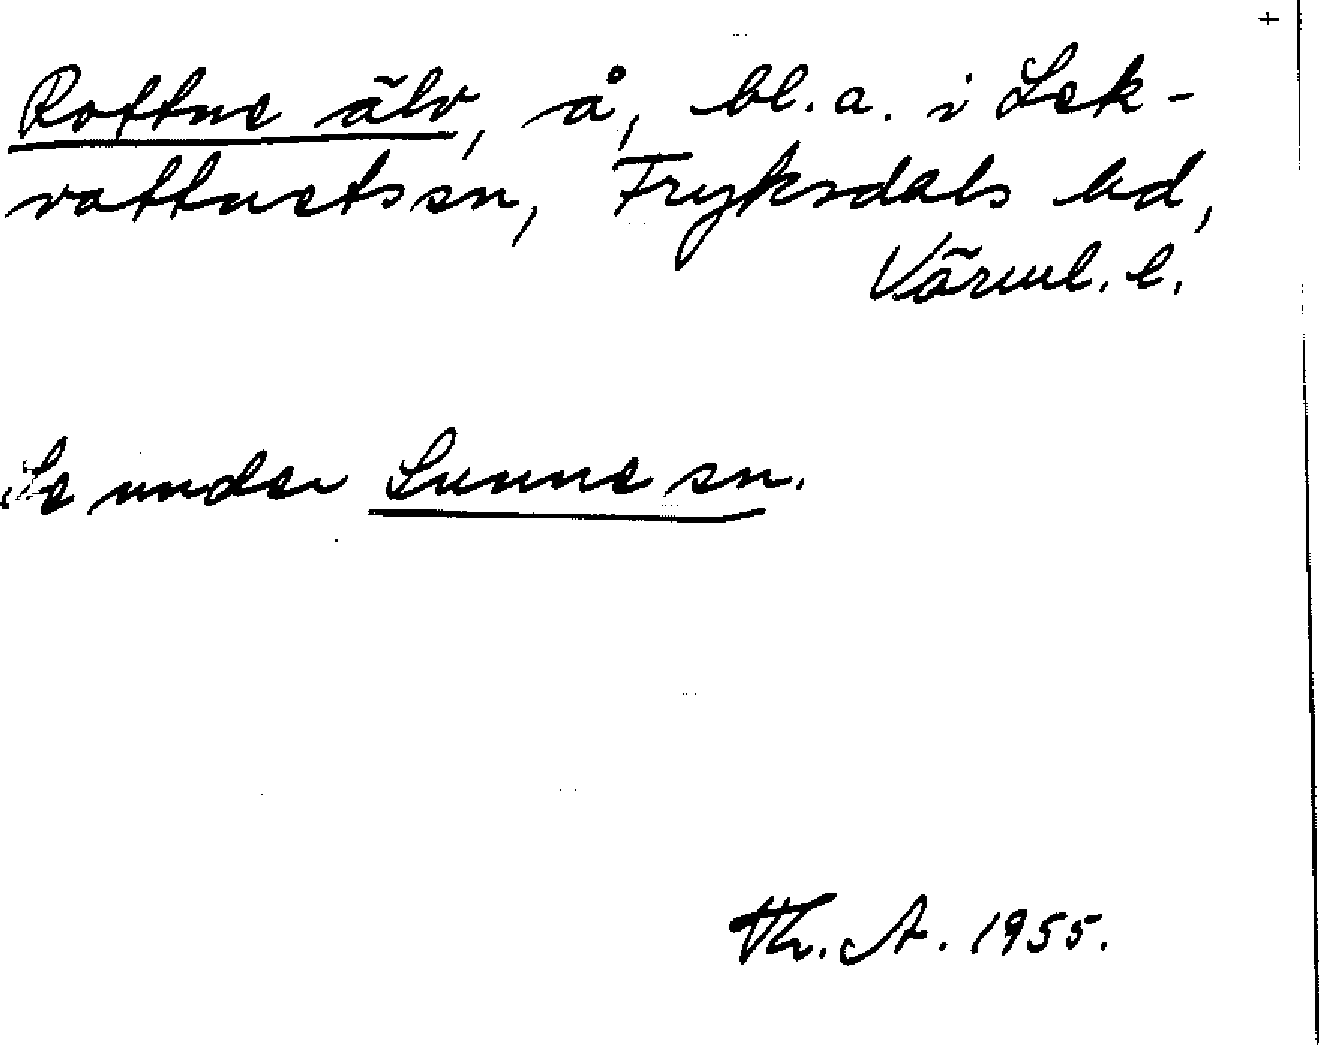 +
Rottne älv, å, bl.a. i Lek-
vattnets sn, Fryksdals hd,
Värml. l.
Se under Sunne sn.
Th. A. 1955.